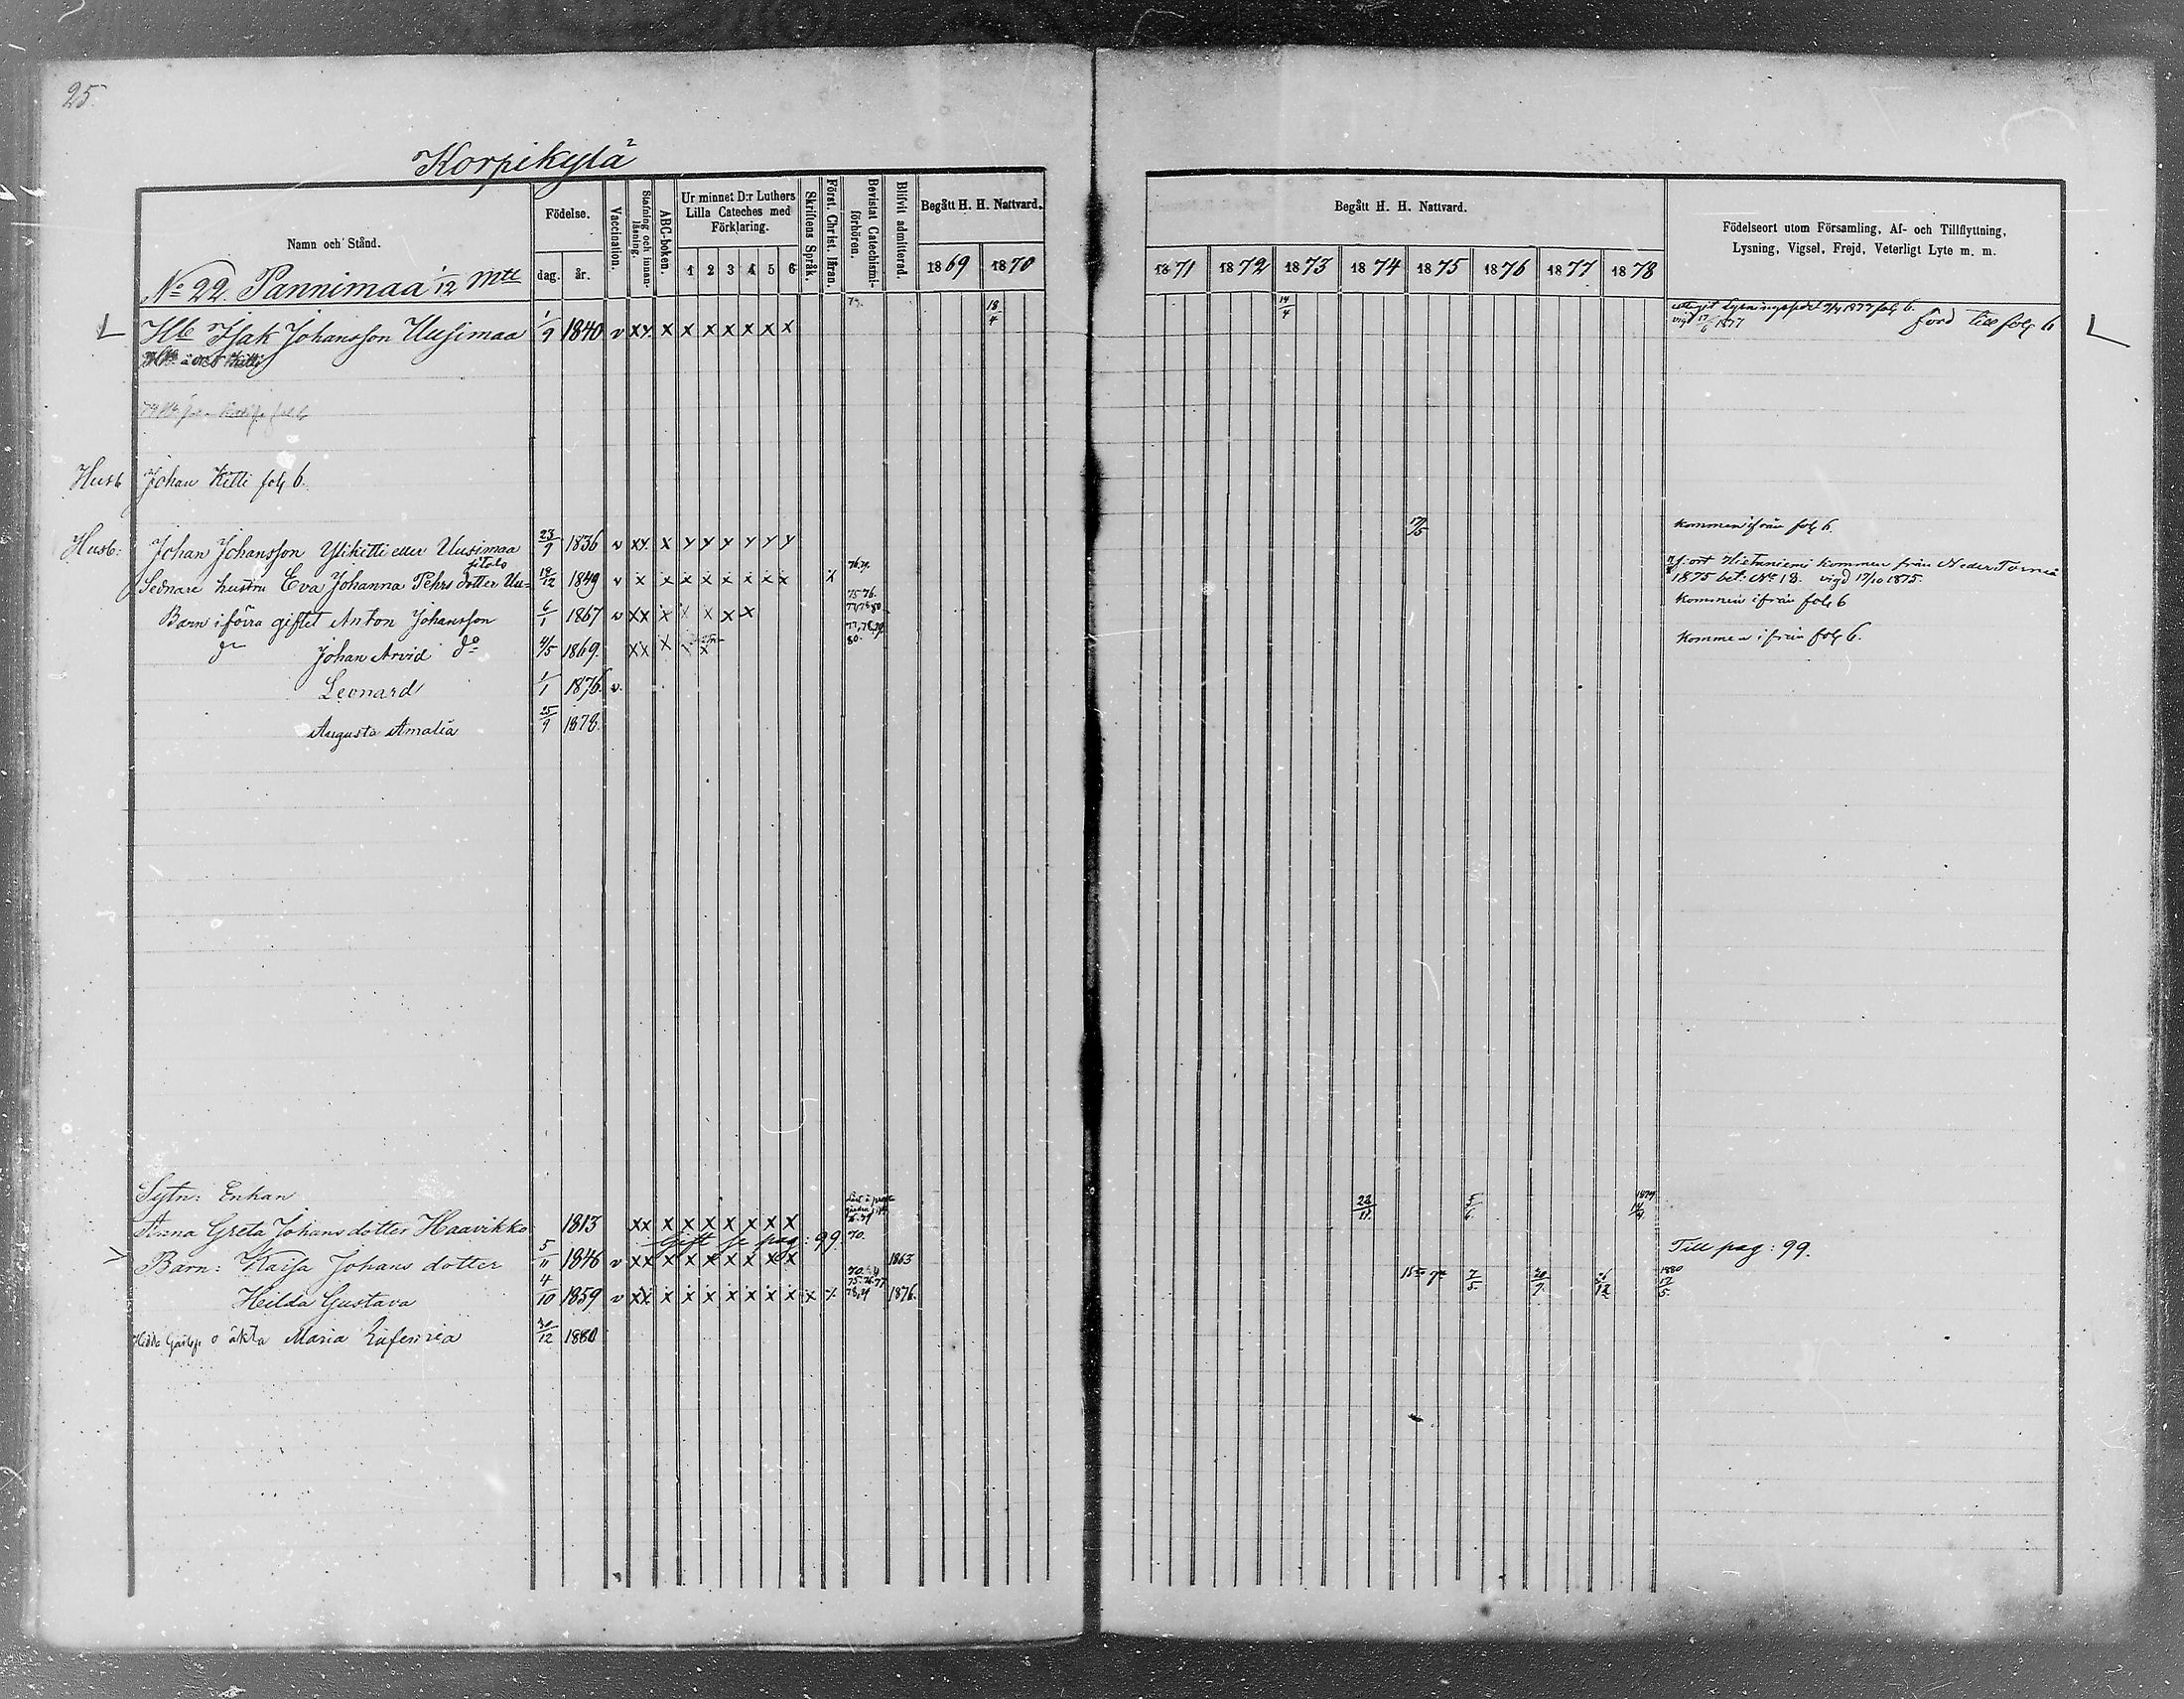 25.
Korpikylä
Namn och Stånd.
Födelse.
dag.
år.
Vaccination.
Stafning och innan-läsning.
ABC-boken.
Ur minnet D:r Luthers
Lilla Cateches med
Förklaring.
1 2 3 4 5 6
Skriftens Språk.
Först. Christ. läran.
Bevistat Catechismi-förhören.
Blifvit admitterad.
Begått H. H. Nattvard.
1869 1870
Begått H. H. Nattvard.
1871 1872 1873 1874 1875 1876 1877 1878
Födelseort utom Församling, Af- och Tillflyttning,
Lysning, Vigsel, Frejd, Veterligt Lyte m. m.
No 22. Pannimaa 1/12 Mtl
Hb Isak Johansson Uusimaa 1/9 1840 v xy. x x x x x x x 18/4 14/4 förd till fol 6
vigd 17/6 1877
Husb Johan Kitti fol 6.
Husb: Johan Johansson Ylikitti eller Uusimaa 23/9 1836 v xy. x y y y y y y 17/5 kommen ifrån fol 6.
Sednare hustru Eva Johanna Pehrs dotter Uu= 18/12 1849 v x x x x x x x x x 76.79. f. ort Hietaniemi kommen från Neder Torneå
fitalo
1875 bet: No 13. vigd 17/10 1875.
Barn i förra giftet Anton Johansson 6/1 1867 v xx x x x x x 75.76. kommen ifrån fol 6
do Johan Arvid do 4/5 1869. xx x x x 80. Kommen ifrån fol 6.
Leonard 1/1 1876. v.
Augusta Amalia 25/9 1878.
Sytn: Enkan
Anna Greta Johansdotter Haavikko 1813 xx x x x x x x x 70. 22/11. 5/6. 1879
Gift se pag: 99.
Barn: Kaisa Johans dotter 5/11 1846 v xx x x x x x x x 1863 Till pag: 99.
Hilda Gustava 4/10 1859 v xx x x x x x x x x x 75.76.77 78,79 1876. 7/5. 30/9. 1880 17/5.
oäkta Maria Eufemia 30/12 1880